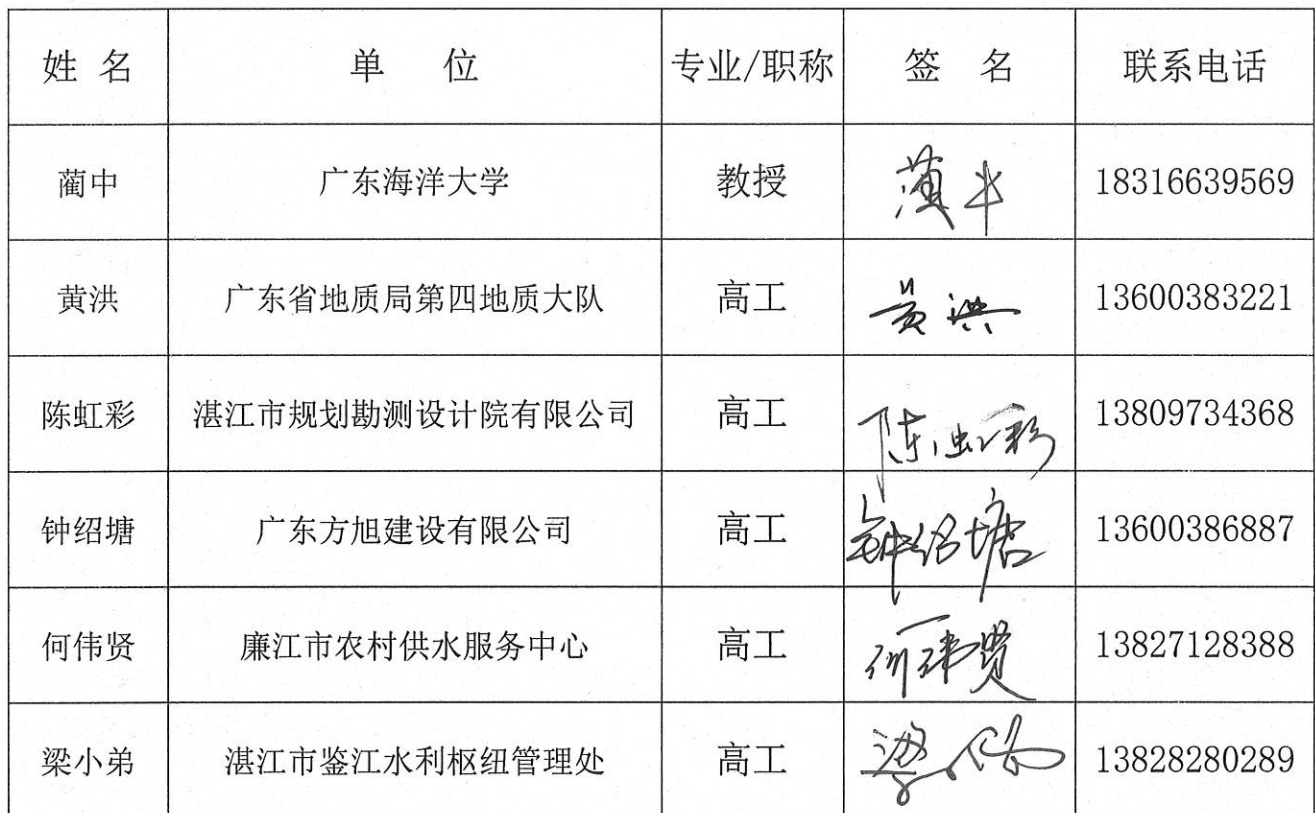 姓 名 单 位 专业/职称 签 名 联系电话
蔺中 广东海洋大学 教授 18316639569
黄洪 广东省地质局第四地质大队 高工 黄洪 13600383221
陈虹彩 湛江市规划勘测设计院有限公司 高工 陈虹彩 13809734368
钟绍塘 广东方旭建设有限公司 高工 钟绍塘 13600386887
何伟贤 廉江市农村供水服务中心 高工 何伟贤 13827128388
梁小弟 湛江市鉴江水利枢纽管理处 高工 13828280289